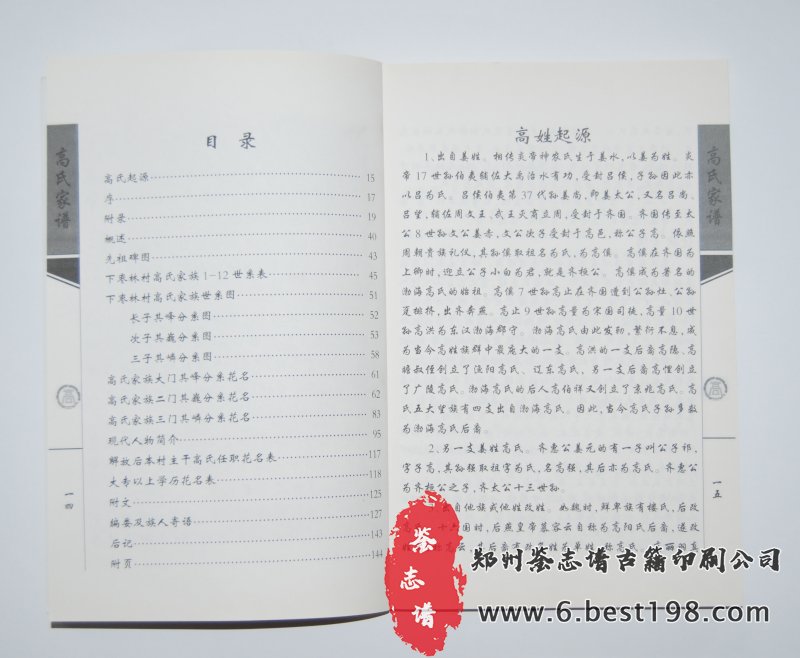 高氏家谱
一四
目 录
高氏起源 15
序 17
附录 19
概述 40
先祖碑图 43
下枣林村高氏家族1-12世系表 45
下枣林村高氏家族世系图 51
长子其峰分系图 52
次子其巍分系图 53
三子其嶙分系图 58
高氏家族大门其峰分系花名 61
高氏家族二门其巍分系花名 62
高氏家族三门其嶙分系花名 83
现代人物简介 95
解放后本村主干高氏任职花名表 117
大专以上学历花名表 118
附文 125
编委及族人寄语 127
后记 143
附页 144
高姓起源
1、出自姜姓。相传炎帝神农氏生于姜水,以姜为姓。炎
帝17世孙伯夷辅佐大禹治水有功,受封吕侯,子孙因此亦
以吕为氏。吕侯伯夷第37代孙姜尚,即姜太公,又名吕尚、
吕望,辅佐周文王、武王灭商立周,受封于齐国。齐国传至太
公8世孙文公姜赤,文公次子受封于高邑,称公子高。依照
周朝贵族礼仪,其孙傒取祖名为氏,为高傒。高傒在齐国为
上卿时,迎立公子小白为君,就是齐桓公。高傒成为著名的
渤海高氏的始祖。高傒7世孙高止在齐国遭到公孙灶、公孙
虿排挤,出齐奔燕。高止9世孙高量为宋国司徒,高量10世
孙高洪为东汉渤海郡守。渤海高氏由此发轫,繁衍不息,成
为当今高姓族群中最庞大的一支。高洪的一支后裔高隐、高
瞻叔侄创立了渔阳高氏、辽东高氏,另一支后裔高悝创立
了广陵高氏。渤海高氏的后人高伯祥又创立了京兆高氏。高
氏五大望族有四支出自渤海高氏。因此,当今高氏子孙多数
为渤海高氏后裔。
2、另一支姜姓高氏。齐惠公姜元的有一子叫公子祁,
字子高,其孙强取祖字为氏,名高强,其后亦为高氏。齐惠公
为齐桓公之子,齐太公十三世孙。
出自他族或他姓改姓。如魏时,鲜卑族有楼氏,后改
高氏;十六国时,后燕皇帝慕容云自称为高阳氏后裔,遂改
高氏家谱
一五
鉴志谱
郑州鉴志谱古籍印刷公司
www.6.best198.com